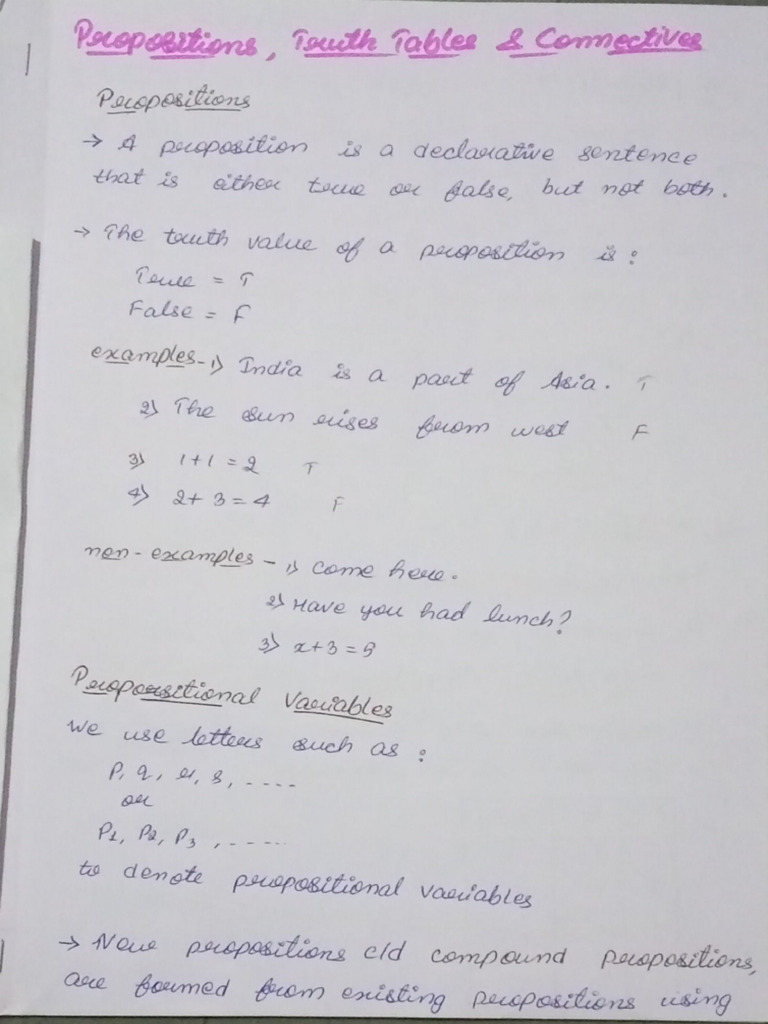 Propositions, Truth Tables & Connectives
Propositions
→ A proposition is a declarative sentence
that is either true or false, but not both.
→ The truth value of a proposition is :
True = T
False = F
examples - 1) India is a part of Asia. T
2) The sun rises from west F
3) 1+1 = 2 T
4) 2+ 3 = 4 F
non - examples - 1) come here.
2) Have you had lunch?
3) x+3 = 5
Propositional Variables
We use letters such as :
p, q, r, s, ----
or
P1, P2, P3 , -----
to denote propositional variables
→ New propositions c/d compound propositions,
are formed from existing propositions using